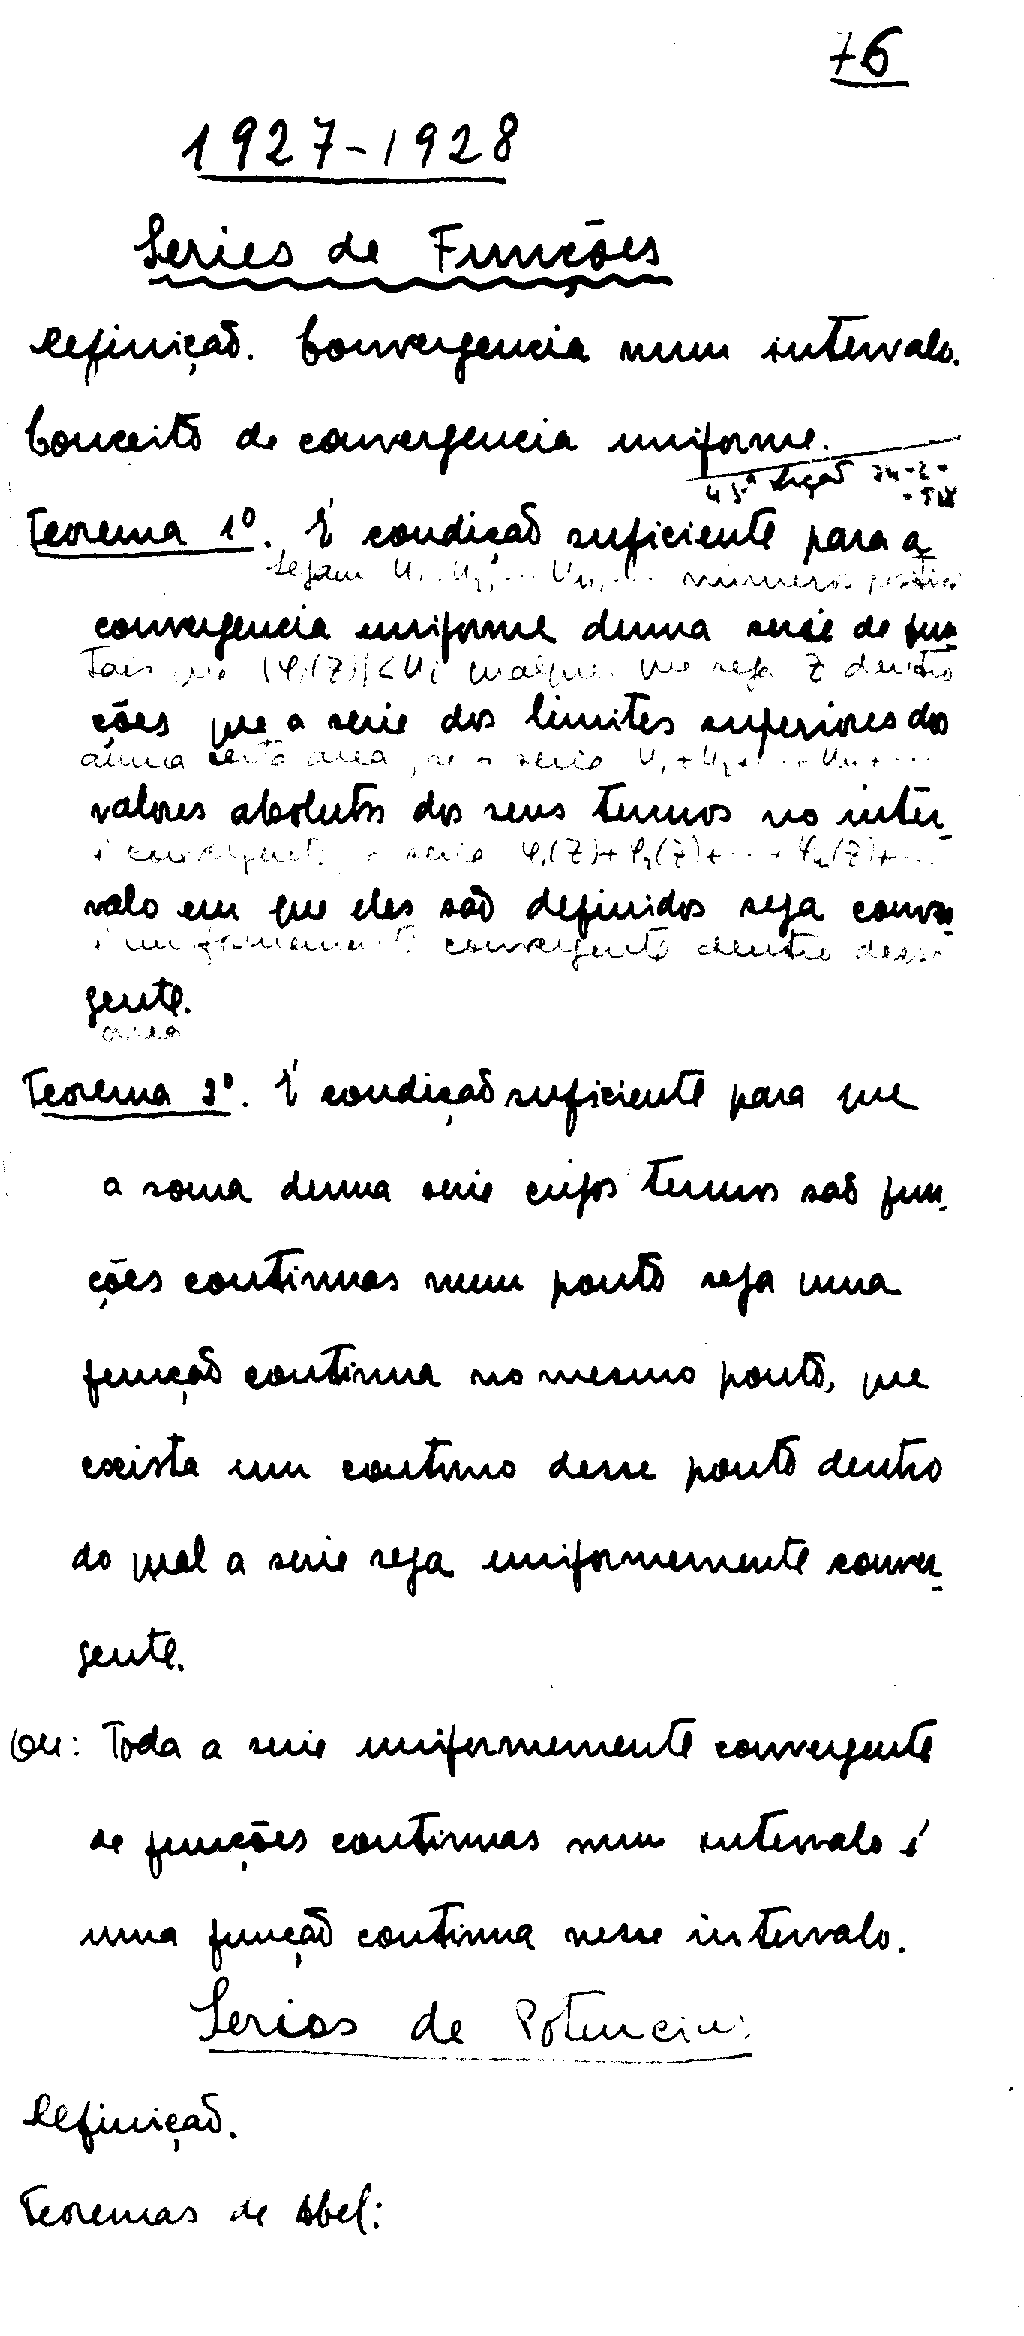 76
1927-1928
Series de Funções
Definição. Convergencia num intervalo.
Conceito de convergencia uniforme.
45ª lição 24-2-
Teorema 1º. É condição suficiente para a
Sejam U1, U2, ... Un, ... numeros
convergencia uniforme duma serie de fun
Tais que |φi(Z)|<Ui qualquer que seja Z dentro
ções que a serie dos limites superiores dos
duma certa area, se a serie U1+U2+...+Un+...
valores absolutos dos seus termos no inter-
é convergente a serie φ1(Z)+φ2(Z)+...+φn(Z)+...
valo em que eles são definidos seja conver
é uniformemente convergente dentro dessa
gente.
area
Teorema 2º. É condição suficiente para que
a soma duma serie cujos termos são fun-
ções continuas num ponto seja uma
função continua no mesmo ponto, que
exista um contorno desse ponto dentro
do qual a serie seja uniformemente conver-
gente.
Ou: Toda a serie uniformemente convergente
de funções continuas num intervalo é
uma função continua nesse intervalo.
Series de Potencias
Definição.
Teoremas de Abel: